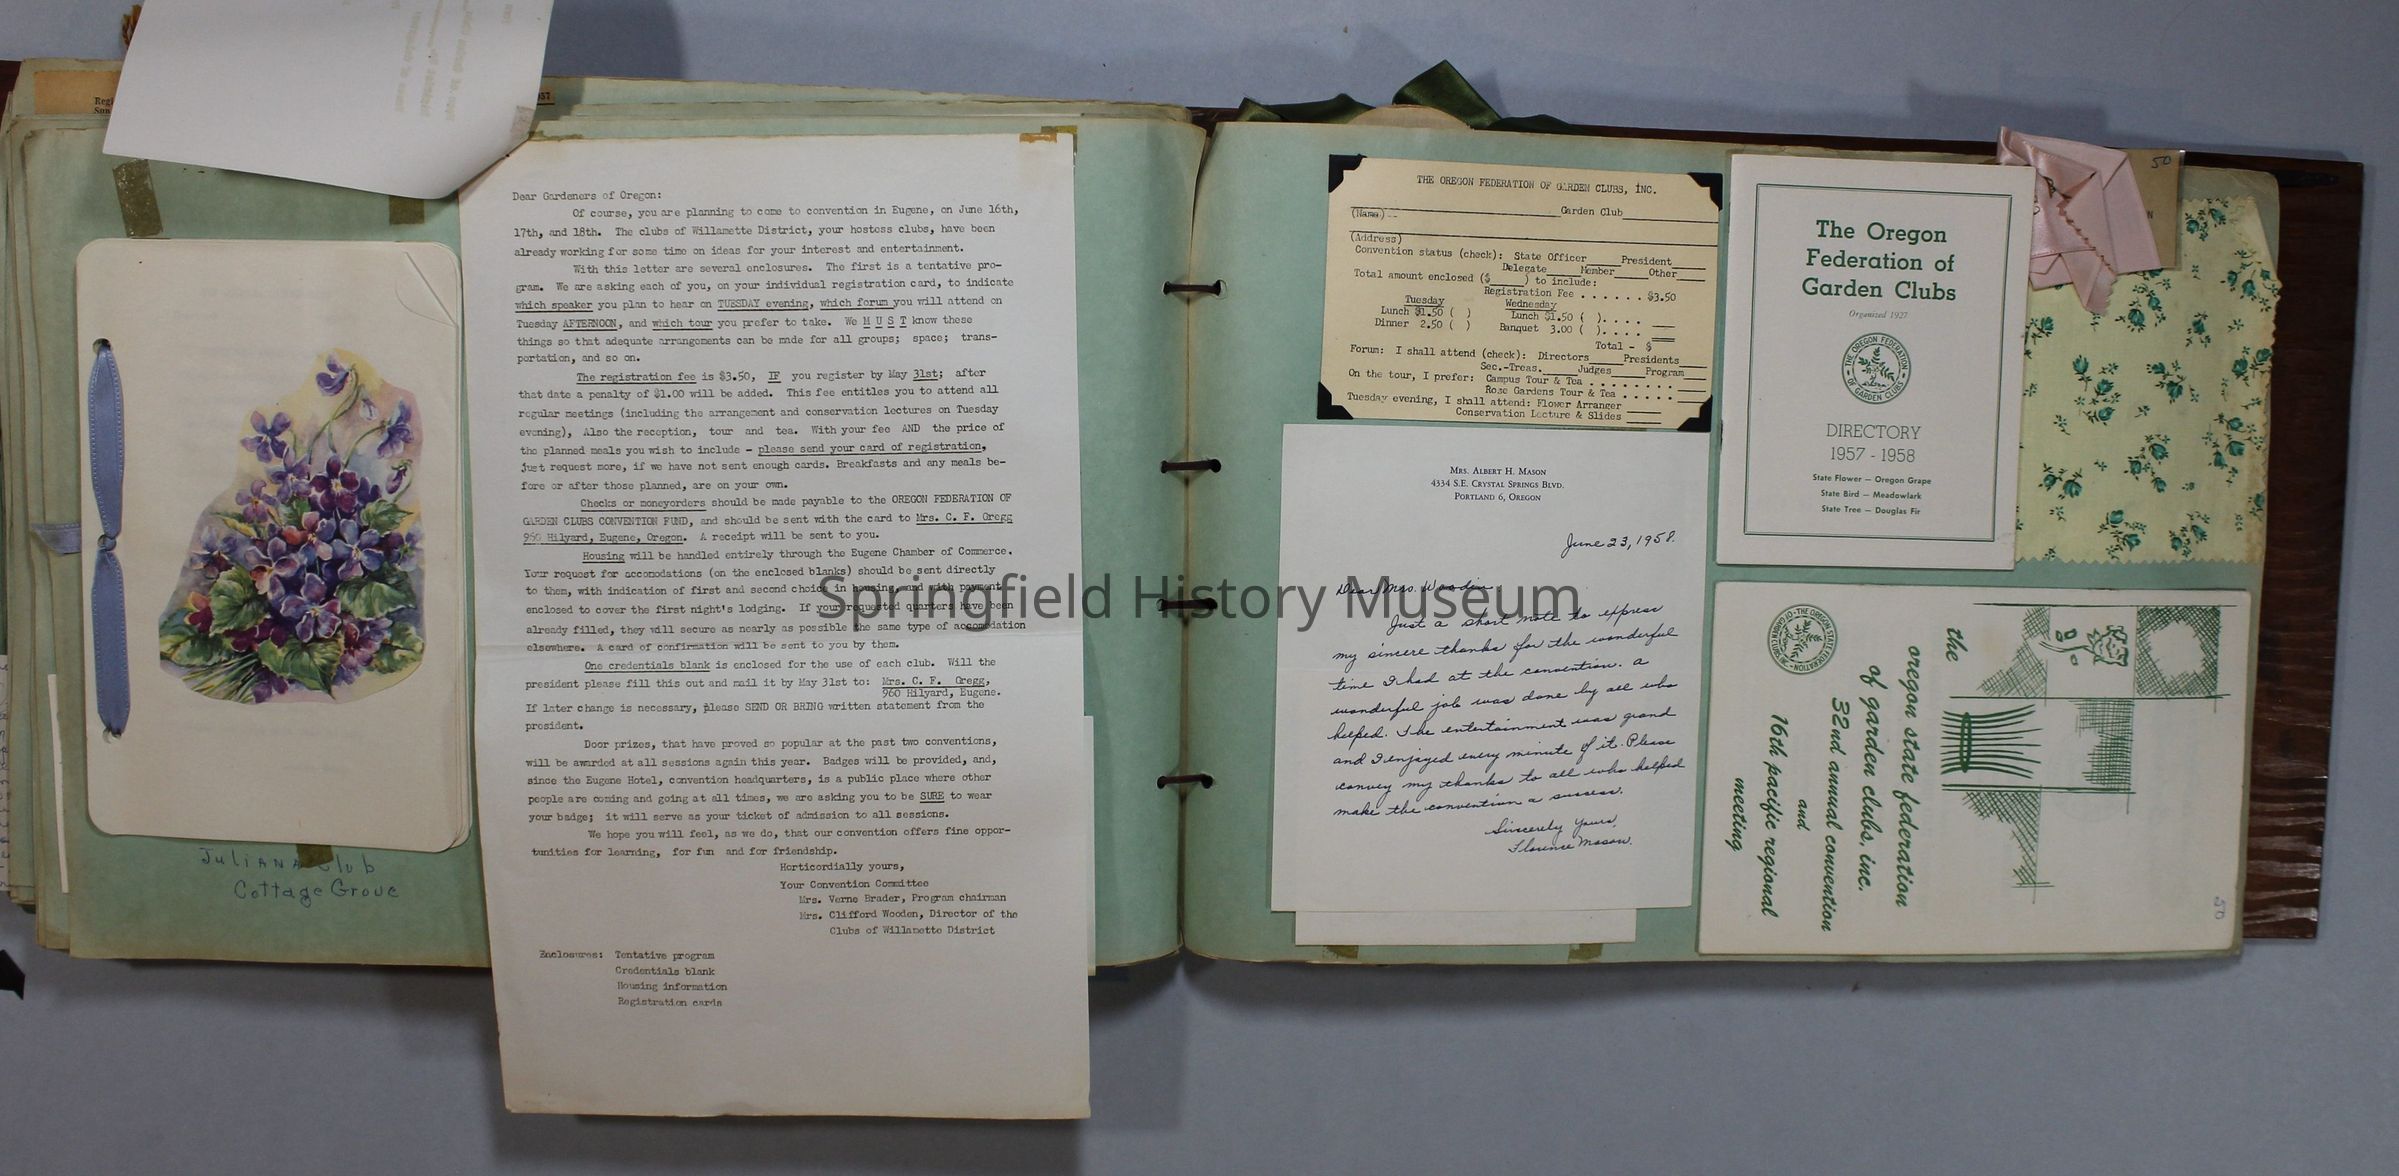 Juliana Club
Cottage Grove
Dear Gardeners of Oregon:
Of course, you are planning to come to convention in Eugene, on June 16th,
17th, and 18th. The clubs of Willamette District, your hostess clubs, have been
already working for some time on ideas for your interest and entertainment.
With this letter are several enclosures. The first is a tentative pro-
gram. We are asking each of you, on your individual registration card, to indicate
which speaker you plan to hear on TUESDAY evening, which forum you will attend on
Tuesday AFTERNOON, and which tour you prefer to take. We M U S T know these
things so that adequate arrangements can be made for all groups; space; trans-
portation, and so on.
The registration fee is $3.50, IF you register by May 31st; after
that date a penalty of $1.00 will be added. This fee entitles you to attend all
regular meetings (including the arrangement and conservation lectures on Tuesday
evening), Also the reception, tour and tea. With your fee AND the price of
the planned meals you wish to include - please send your card of registration,
just request more, if we have not sent enough cards. Breakfasts and any meals be-
fore or after those planned, are on your own.
Checks or moneyorders should be made payable to the OREGON FEDERATION OF
GARDEN CLUBS CONVENTION FUND, and should be sent with the card to Mrs. C. F. Gregg
960 Hilyard, Eugene, Oregon. A receipt will be sent to you.
Housing will be handled entirely through the Eugene Chamber of Commerce.
Your request for accomodations (on the enclosed blanks) should be sent directly
to them, with indication of first and second choice in housing, and with payment
enclosed to cover the first night's lodging. If your requested quarters have been
already filled, they will secure as nearly as possible the same type of accomodation
elsewhere. A card of confirmation will be sent to you by them.
One credentials blank is enclosed for the use of each club. Will the
president please fill this out and mail it by May 31st to: Mrs. C. F. Gregg,
960 Hilyard, Eugene.
If later change is necessary, please SEND OR BRING written statement from the
president.
Door prizes, that have proved so popular at the past two conventions,
will be awarded at all sessions again this year. Badges will be provided, and,
since the Eugene Hotel, convention headquarters, is a public place where other
people are coming and going at all times, we are asking you to be SURE to wear
your badge; it will serve as your ticket of admission to all sessions.
We hope you will feel, as we do, that our convention offers fine oppor-
tunities for learning, for fun and for friendship.
Horticordially yours,
Your Convention Committee
Mrs. Verne Brader, Program chairman
Mrs. Clifford Wooden, Director of the
Clubs of Willamette District
Enclosures: Tentative program
Credentials blank
Housing information
Registration cards
THE OREGON FEDERATION OF GARDEN CLUBS, INC.
(Name) Garden Club
(Address)
Convention status (check): State Officer President
Delegate Member Other
Total amount enclosed ($ ) to include:
Registration Fee . . . . . . $3.50
Tuesday Wednesday
Lunch $1.50 ( ) Lunch $1.50 ( ). . . .
Dinner 2.50 ( ) Banquet 3.00 ( ). . . .
Total - $
Forum: I shall attend (check): Directors Presidents
Sec.-Treas. Judges Program
On the tour, I prefer: Campus Tour & Tea . . . . . . . . .
Rose Gardens Tour & Tea . . . . .
Tuesday evening, I shall attend: Flower Arranger
Conservation Lecture & Slides
MRS. ALBERT H. MASON
4334 S.E. CRYSTAL SPRINGS BLVD.
PORTLAND 6, OREGON
June 23, 1958.
Dear Mrs. Wooden
Just a short note to express
my sincere thanks for the wonderful
time I had at the convention. A
wonderful job was done by all who
helped. The entertainment was grand
and I enjoyed every minute of it. Please
convey my thanks to all who helped
make the convention a success.
Sincerely Yours,
Florence Mason.
The Oregon
Federation of
Garden Clubs
Organized 1927
THE OREGON FEDERATION
OF GARDEN CLUBS
DIRECTORY
1957 - 1958
State Flower — Oregon Grape
State Bird — Meadowlark
State Tree — Douglas Fir
50
THE OREGON STATE FEDERATION
OF GARDEN CLUBS
the
oregon state federation
of garden clubs, inc.
32nd annual convention
and
16th pacific regional
meeting
50
Springfield History Museum